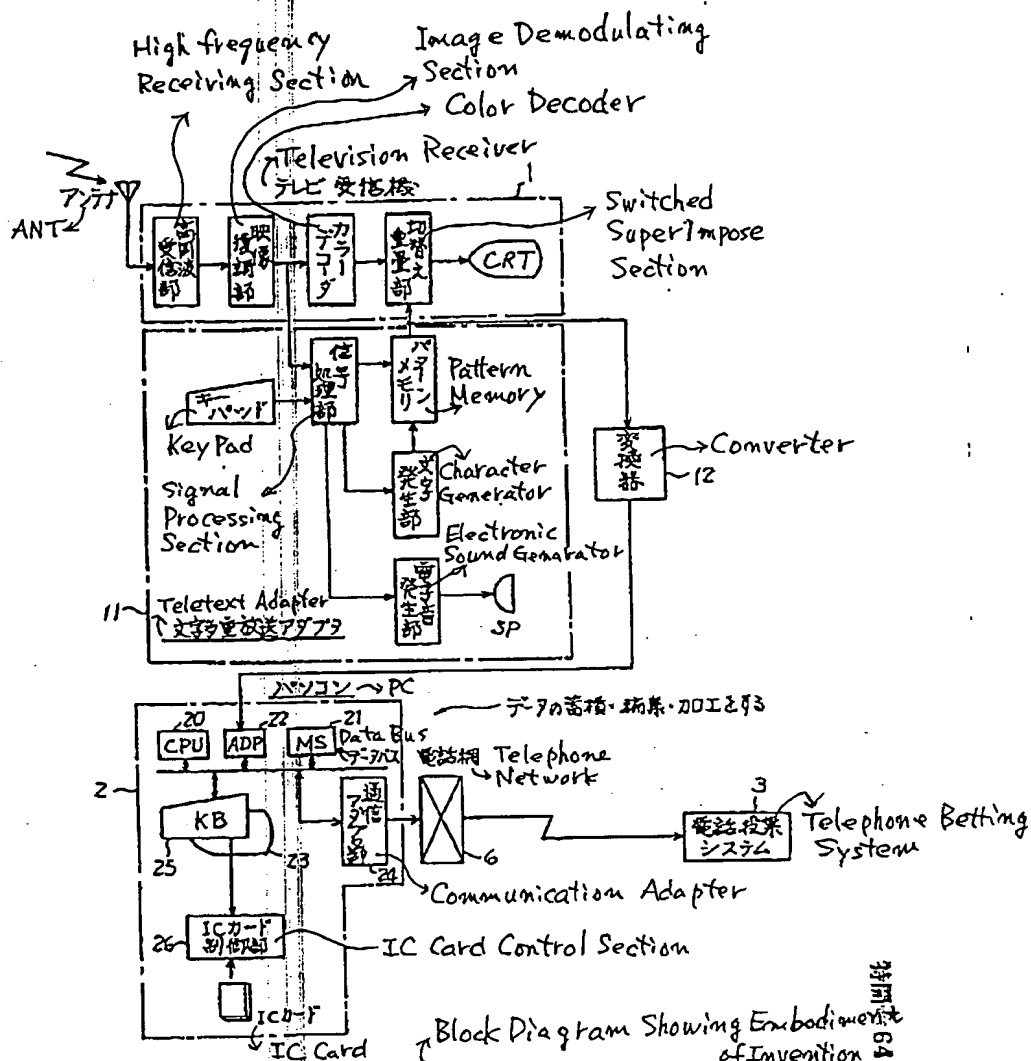 High frequency
Receiving Section
Image Demodulating
Section
Color Decoder
Television Receiver
テレビ受信機
1
アンテナ
ANT
高周波
受信部
映像
復調部
カラー
デコーダ
切替え
重畳部
CRT
Switched
SuperImpose
Section
キー
パッド
Key Pad
信号
処理部
パターン
メモリ
Pattern
Memory
Signal
Processing
Section
文字
発生部
Character
Generator
変換器
Converter
12
Electronic
Sound Genarator
電子音
発生部
SP
11
Teletext Adapter
文字多重放送アダプタ
パソコン
PC
データの蓄積・編集・加工をする
20
CPU
22
ADP
21
MS
Data Bus
データバス
電話網
Telephone
Network
2
KB
25
23
通信
アダプタ部
24
6
3
電話投票
システム
Telephone Betting
System
Communication Adapter
26
ICカード
制御部
IC Card Control Section
ICカード
IC Card
特開 64
Block Diagram Showing Embodiment
of Invention